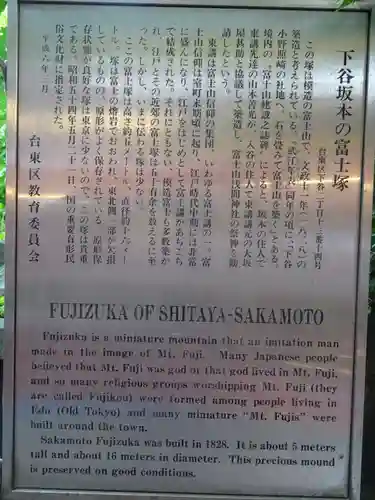 下谷坂本の富士塚
台東区下谷二丁目十三番十四号
この塚は模造の富士山で、文政十一年(一八二八)の
築造と考えられている。『武江年表』同年の項に、「下谷
小野照崎の社地へ、石を畳みて富士山を築く」とある。
境内の「富士建
東講先達の山本善光が、入谷の住人で東講講元の大坂
屋甚助と協議して築造し、富士山浅間神社の祭神を勧
請したという。
東講は富士山信仰の集団、いわゆる富士講の一。富
士山信仰は室町末期頃に起り、江戸時代中期には非常
に盛んになり、江戸をはじめとして富士講があちこち
で結成された。それにともない、模造富士も多数築か
れ、江戸とその近郊の富士塚は五十有余を数えるに至
った。しかし、いまに伝わる塚は少ない。
ここの富士塚は高さ約五メートル、直径約十六メー
トル。塚は富士の溶岩でおおわれ、東北側一部が欠損
しているものの、原形がよく保存されている。原形保
存状態が良好な塚は東京に少ないので、この塚は貴重
である。昭和五十四年五月二十一日、国の重要有形民
俗文化財に指定された。
平成六年三月
台東区教育委員会
FUJIZUKA OF SHITAYA-SAKAMOTO
Fujizuka is a miniature mountain that an imitation man
made in the image of Mt. Fuji. Many Japanese people
believed that Mt. Fuji was god or that god lived in Mt. Fuji,
and so many religious groups worshipping Mt. Fuji (they
are called Fujikou) were formed among people living in
Edo (Old Tokyo) and many miniature "Mt. Fujis" were
built around the town.
Sakamoto Fujizuka was built in 1828. It is about 5 meters
tall and about 16 meters in diameter. This precious mound
is preserved on good conditions.